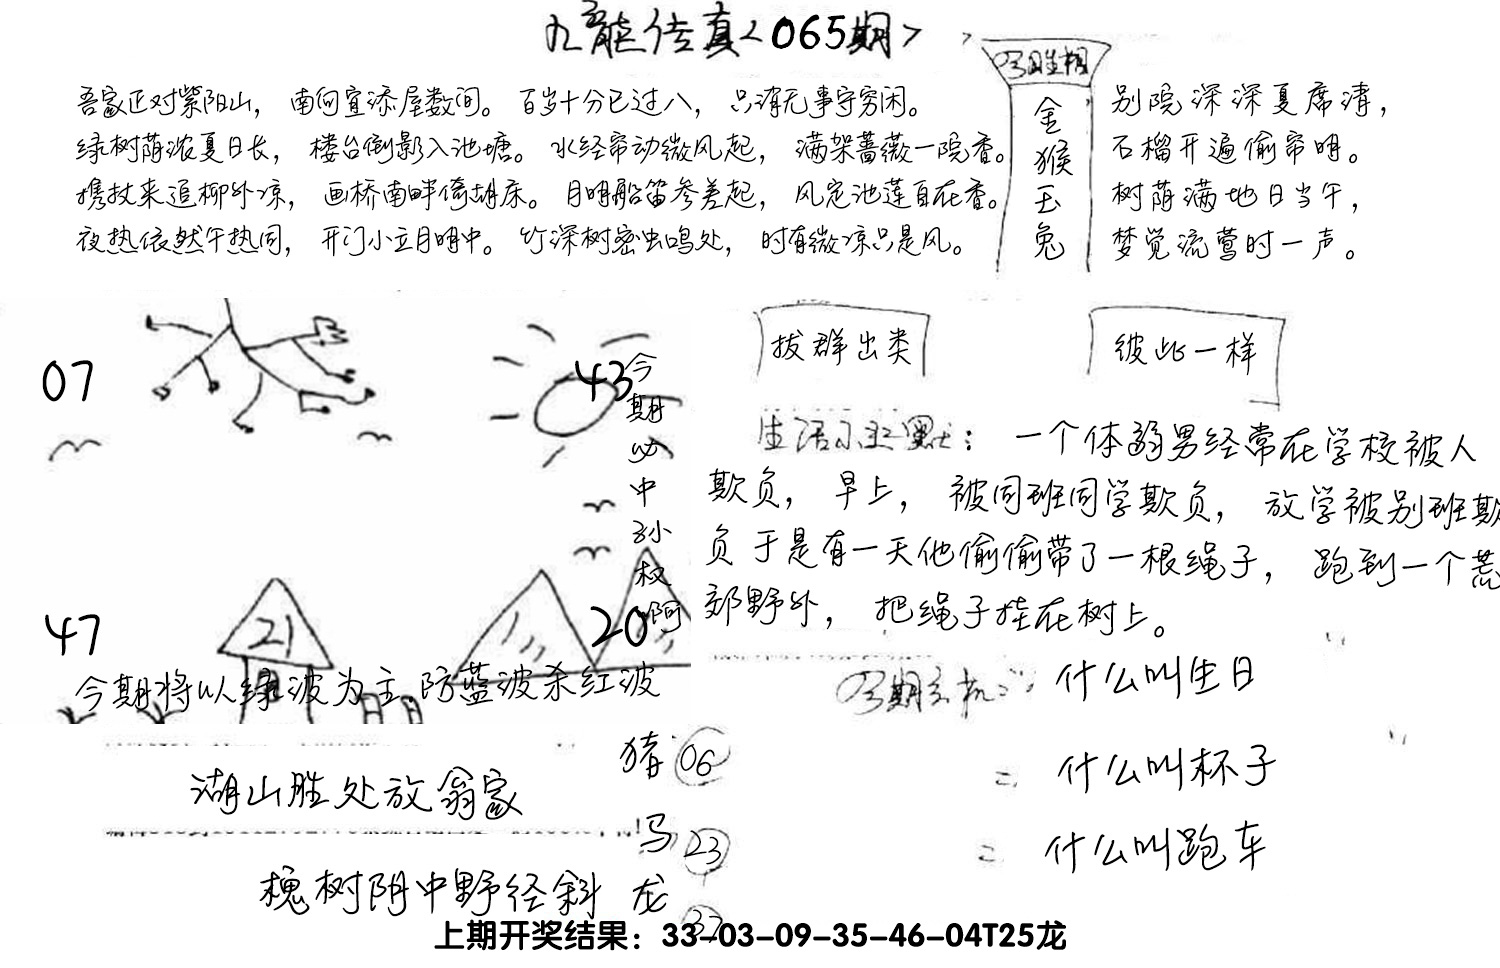 九龙传真<065期>
吾家正对紫阳山，南向宜添屋数间。百岁十分已过八，只消无事守穷闲。
绿树荫浓夏日长，楼台倒影入池塘。水经帘动微风起，满架蔷薇一院香。
携扙来追柳外凉，画桥南畔倚胡床。月明船笛参差起，风定池莲自在香。
夜热依然午热同，开门小立月明中。竹深树密虫鸣处，时有微凉只是风。
金猴玉兔
别院深深夏席清，
石榴开遍偷帘明。
树荫满地日当午，
梦觉流莺时一声。
07
43
47
21
20
今期必中孙权啊
今期将以绿波为主防蓝波杀红波
拔群出类
彼此一样
生活小幽默：一个体弱男经常在学校被人
欺负，早上，被同班同学欺负，放学被别班欺
负于是有一天他偷偷带了一根绳子，跑到一个荒
郊野外，把绳子挂在树上。
什么叫生日
二 什么叫杯子
二 什么叫跑车
湖山胜处放翁家
槐树阴中野径斜
猪 06
马 23
龙 37
上期开奖结果：33-03-09-35-46-04T25龙